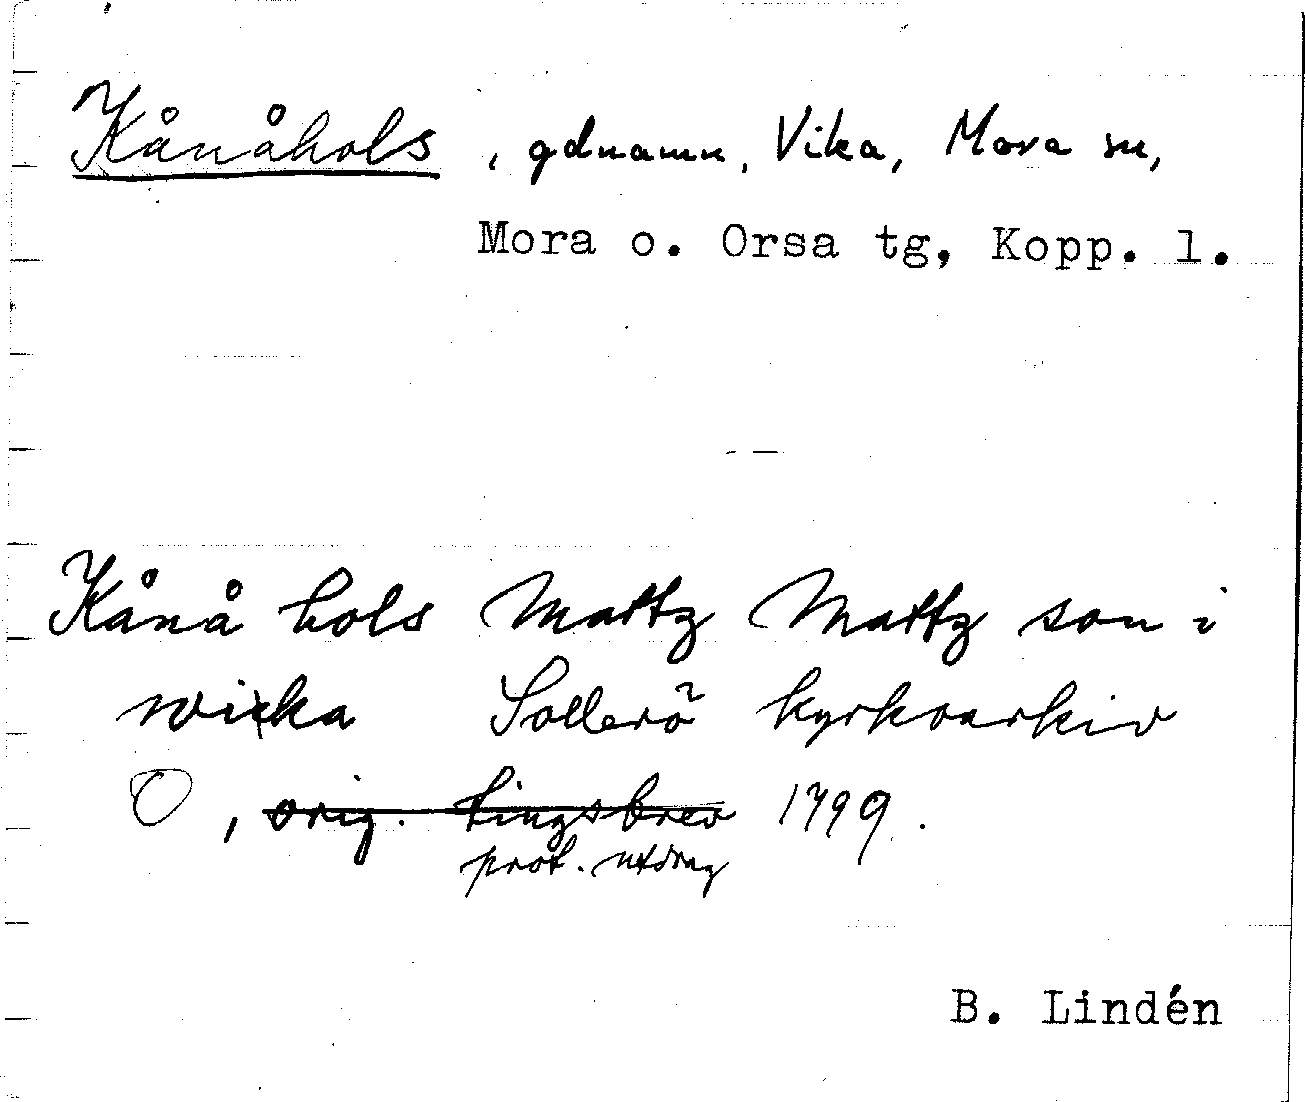 Kånåhols, gdnamn, Vika, Mora sn,
Mora o. Orsa tg, Kopp. l.
Kånå hols Mattz Mattz son i
wicka Sollerö kyrkoarkiv
O, orig. tingsbrev 1799.
prot. utdrag
B. Lindén